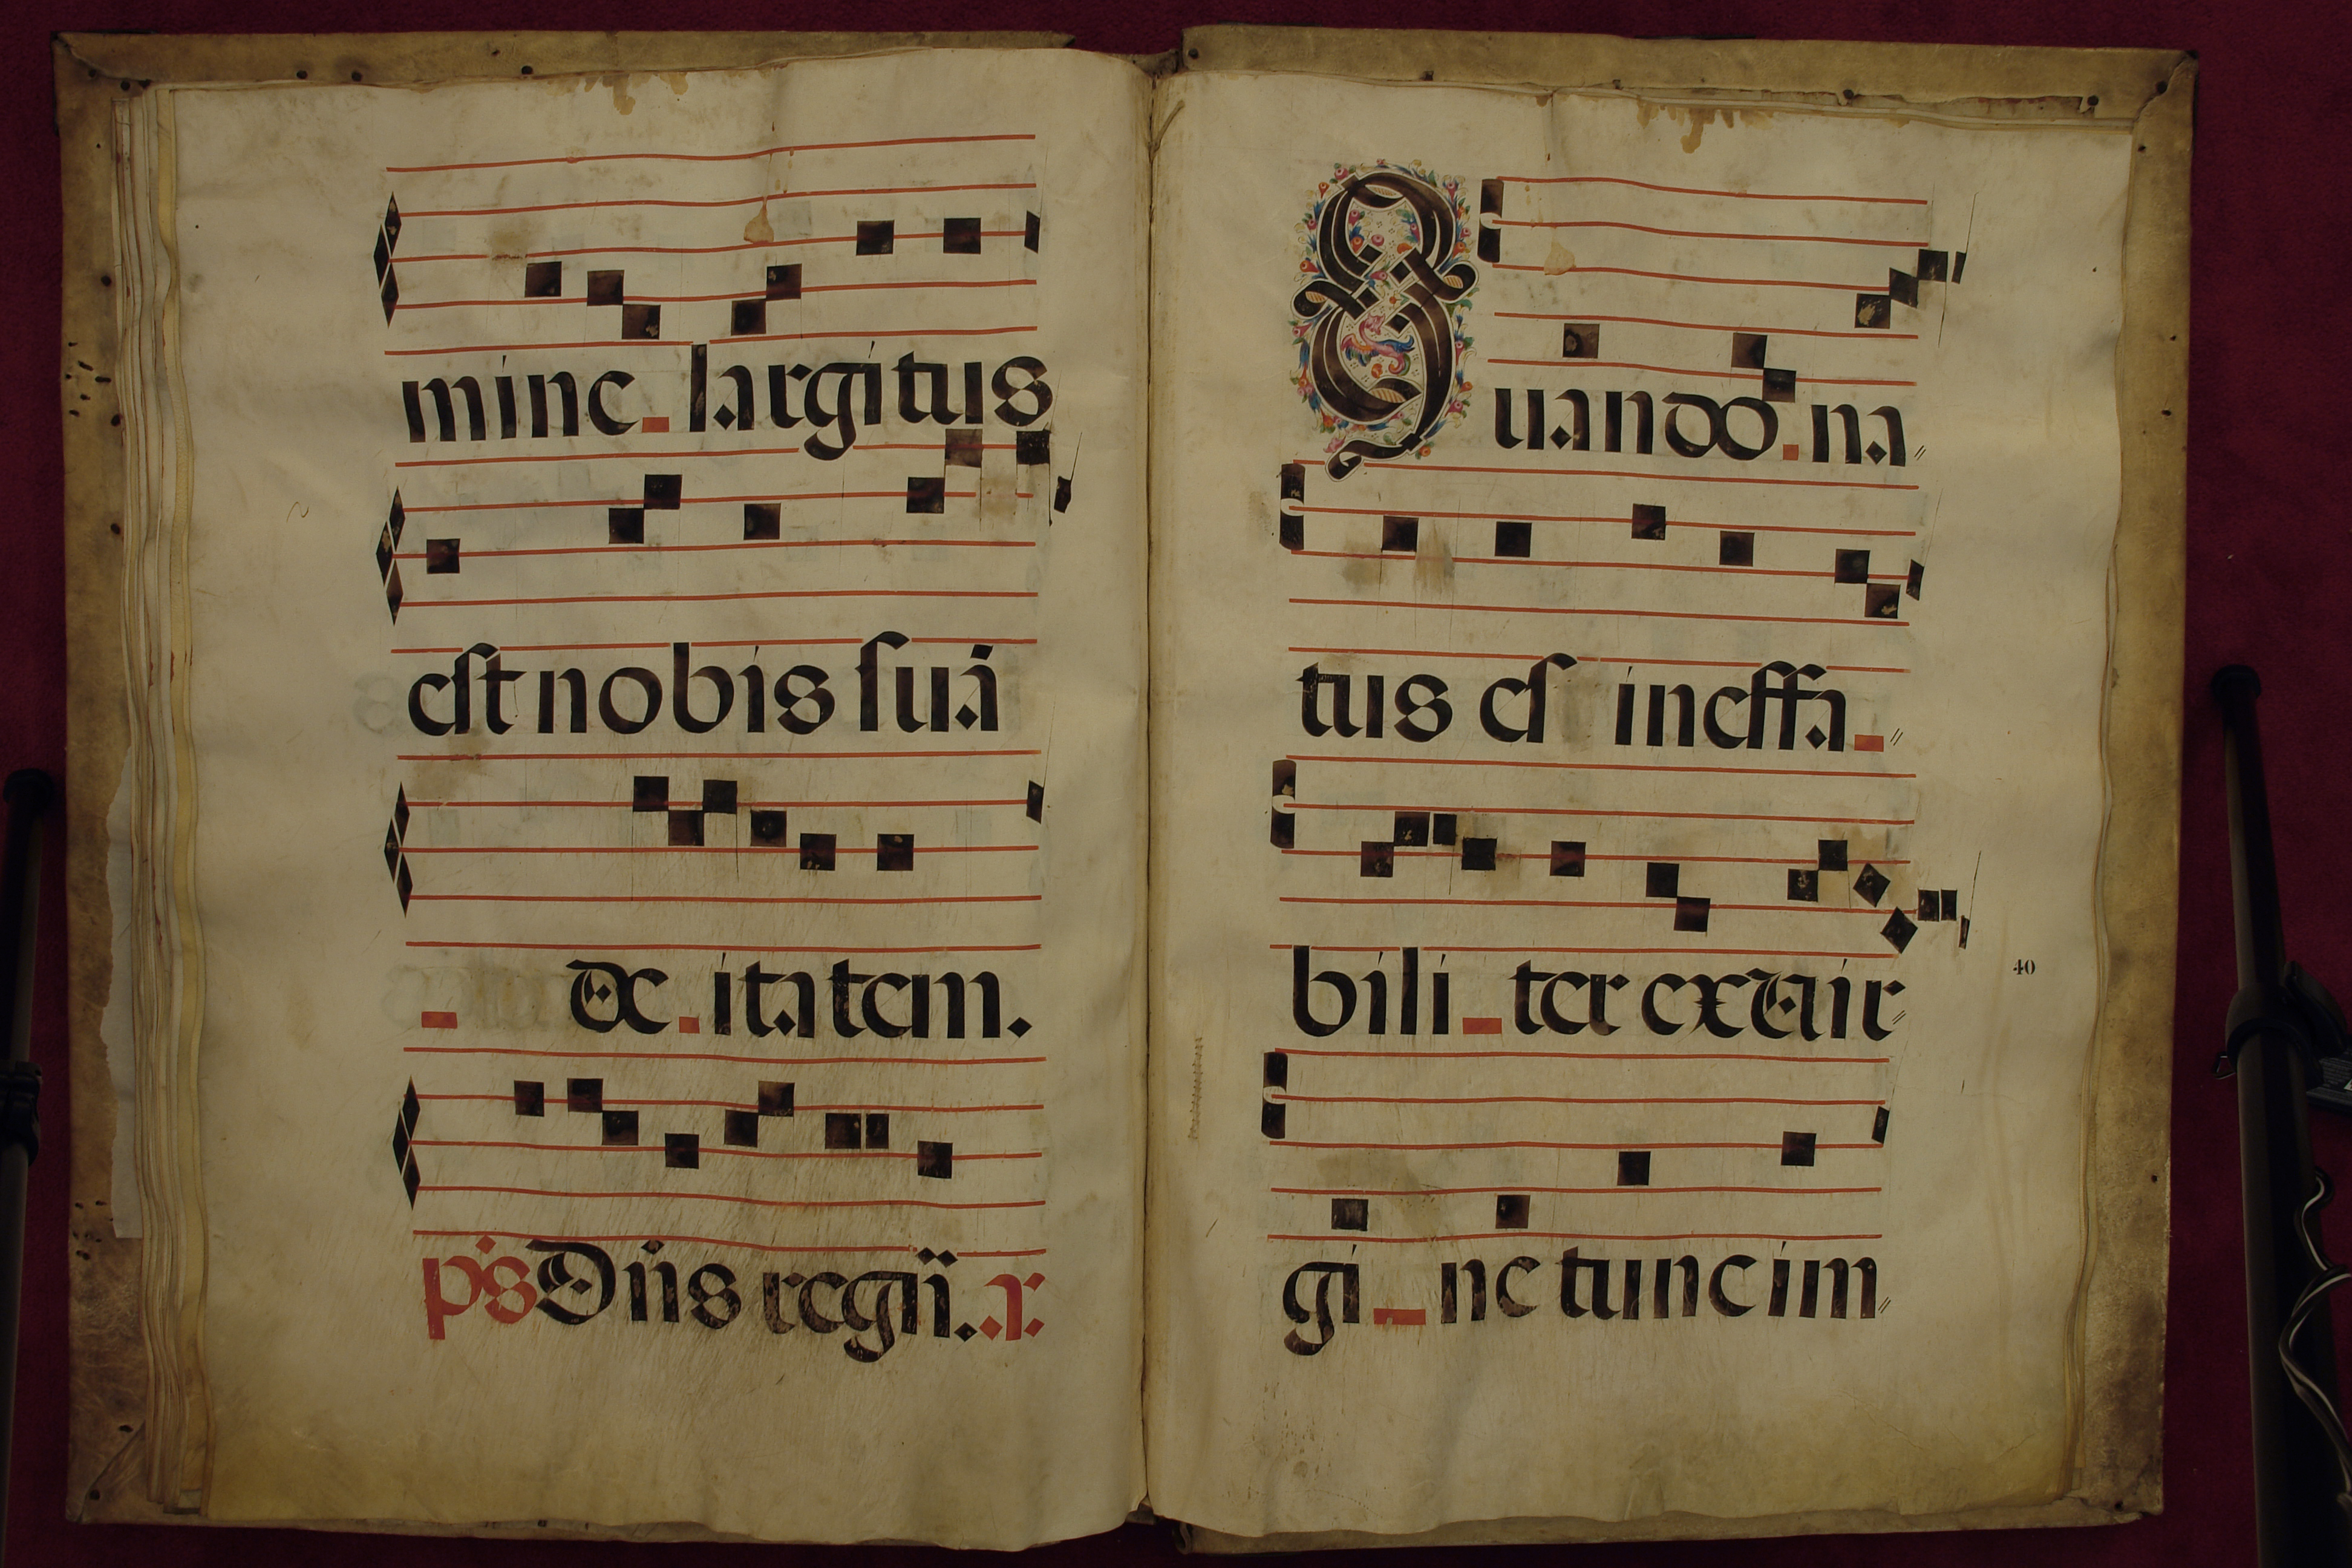 mine largitus
est nobis suā
de itatem.
ps Dn̄s regn̄. r.
Quando na
tus es ineffa
bili ter ex vir
40
gi ne tunc im